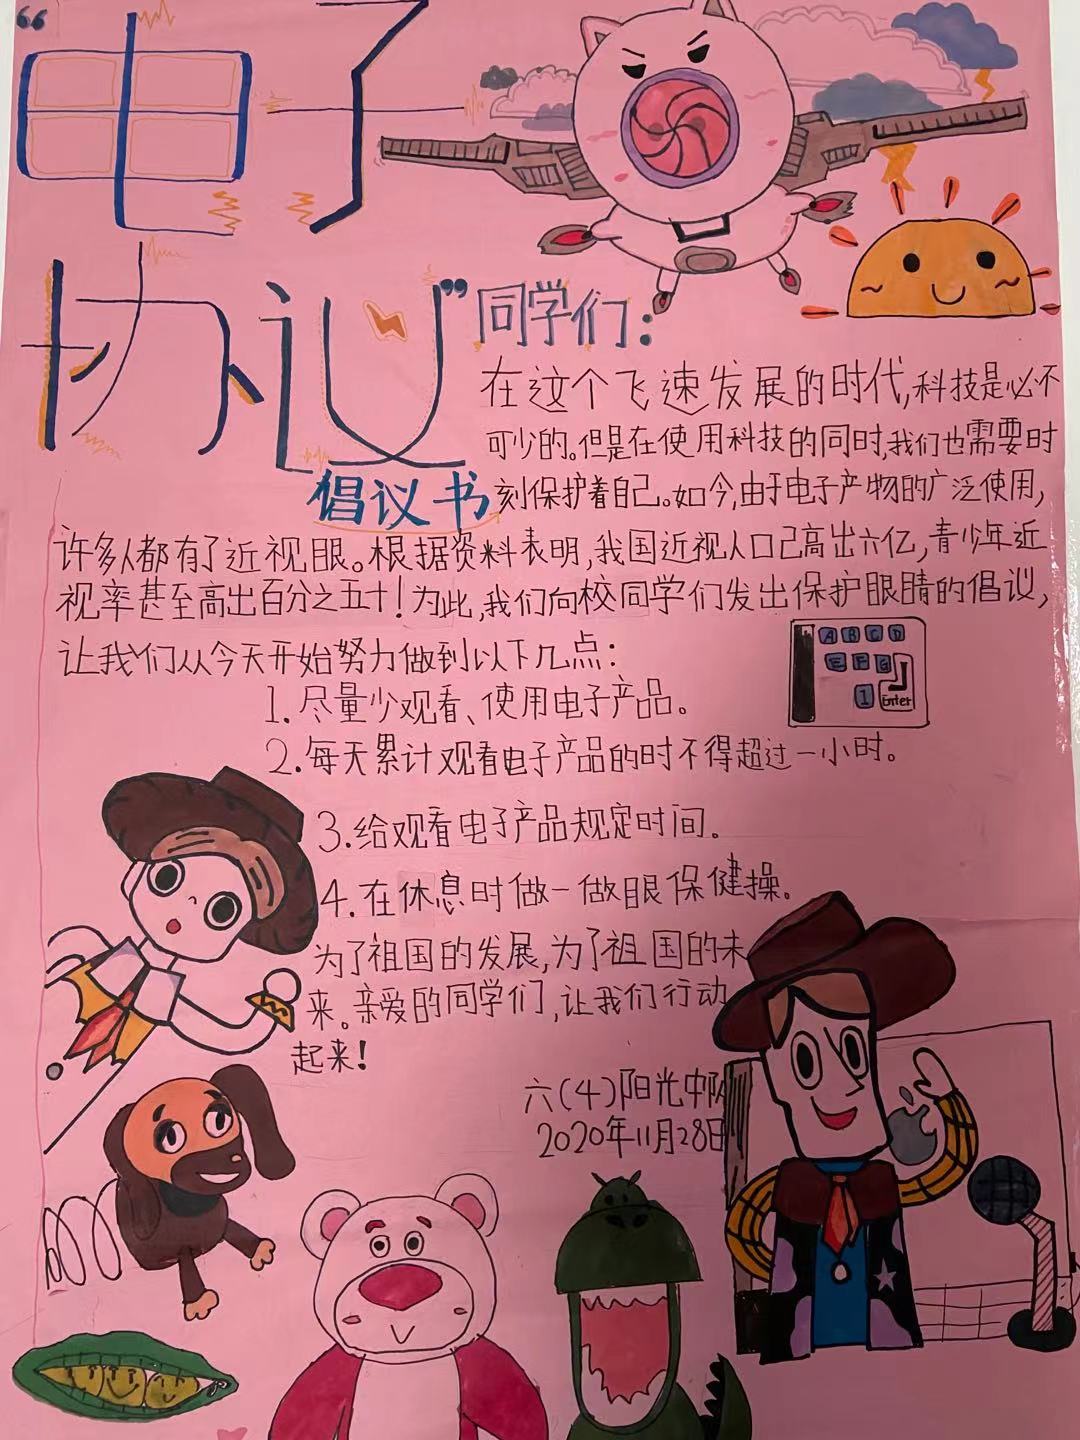 “电子
协议”
倡议书
同学们：
在这个飞速发展的时代,科技是必不
可少的。但是在使用科技的同时,我们也需要时
刻保护着自己。如今,由于电子产物的广泛使用,
许多人都有了近视眼。根据资料表明,我国近视人口已高出六亿,青少年近
视率甚至高出百分之五十!为此,我们向校同学们发出保护眼睛的倡议,
让我们从今天开始努力做到以下几点：
A B C D
E F G
1 Enter
1.尽量少观看、使用电子产品。
2.每天累计观看电子产品的时不得超过一小时。
3.给观看电子产品规定时间。
4.在休息时做一做眼保健操。
为了祖国的发展,为了祖国的未
来。亲爱的同学们,让我们行动
起来!
六(4)阳光中队
2020年11月28日